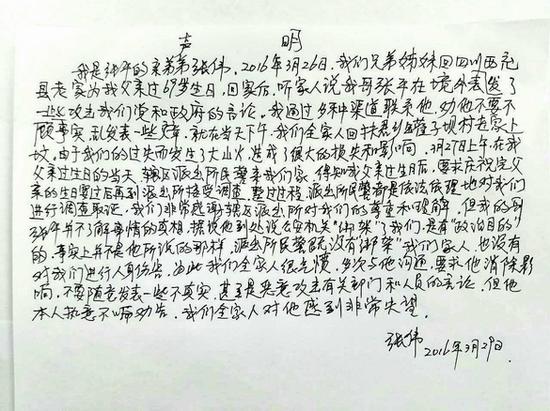 声 明
我是张平的亲弟弟张伟，2016年3月26日，我们兄弟姊妹回四川西充
县老家为我父亲过69岁生日，回家后，听家人说我哥张平在境外表发了
一些攻击我们党和政府的言论。我通过多种渠道联系他，劝他不要不
顾事实，乱发表一些文章。就在当天下午，我们全家人回扶君乡子坝村老家上
坟，由于我们的过失而发生了大山火，造成了很大的损失和影响。3月27日上午，在我
父亲过生日的当天，辖区派出所民警来我们家，得知我父亲过生日后，要求庆祝完父
亲的生日宴过后再到派出所接受调查，整过过程，派出所民警都是依法依理地对我们
进行调查取证。我们非常感谢辖区派出所对我们的尊重和理解。但我的哥
张平并不了解事情的真相，据说他到处说公安机关“绑架”了我们，是有“政治目的”
的，事实上并不是他所说的那样，派出所民警既没有“绑架”我们家人，也没有
对我们进行人身伤害。为此，我们全家人很气愤，多次与他沟通，要求他消除影
响，不要随意发表一些不真实，甚至是恶意攻击有关部门和人员的言论，但他
本人执意不听劝告，我们全家人对他感到非常失望。
张伟 2016年3月29日.